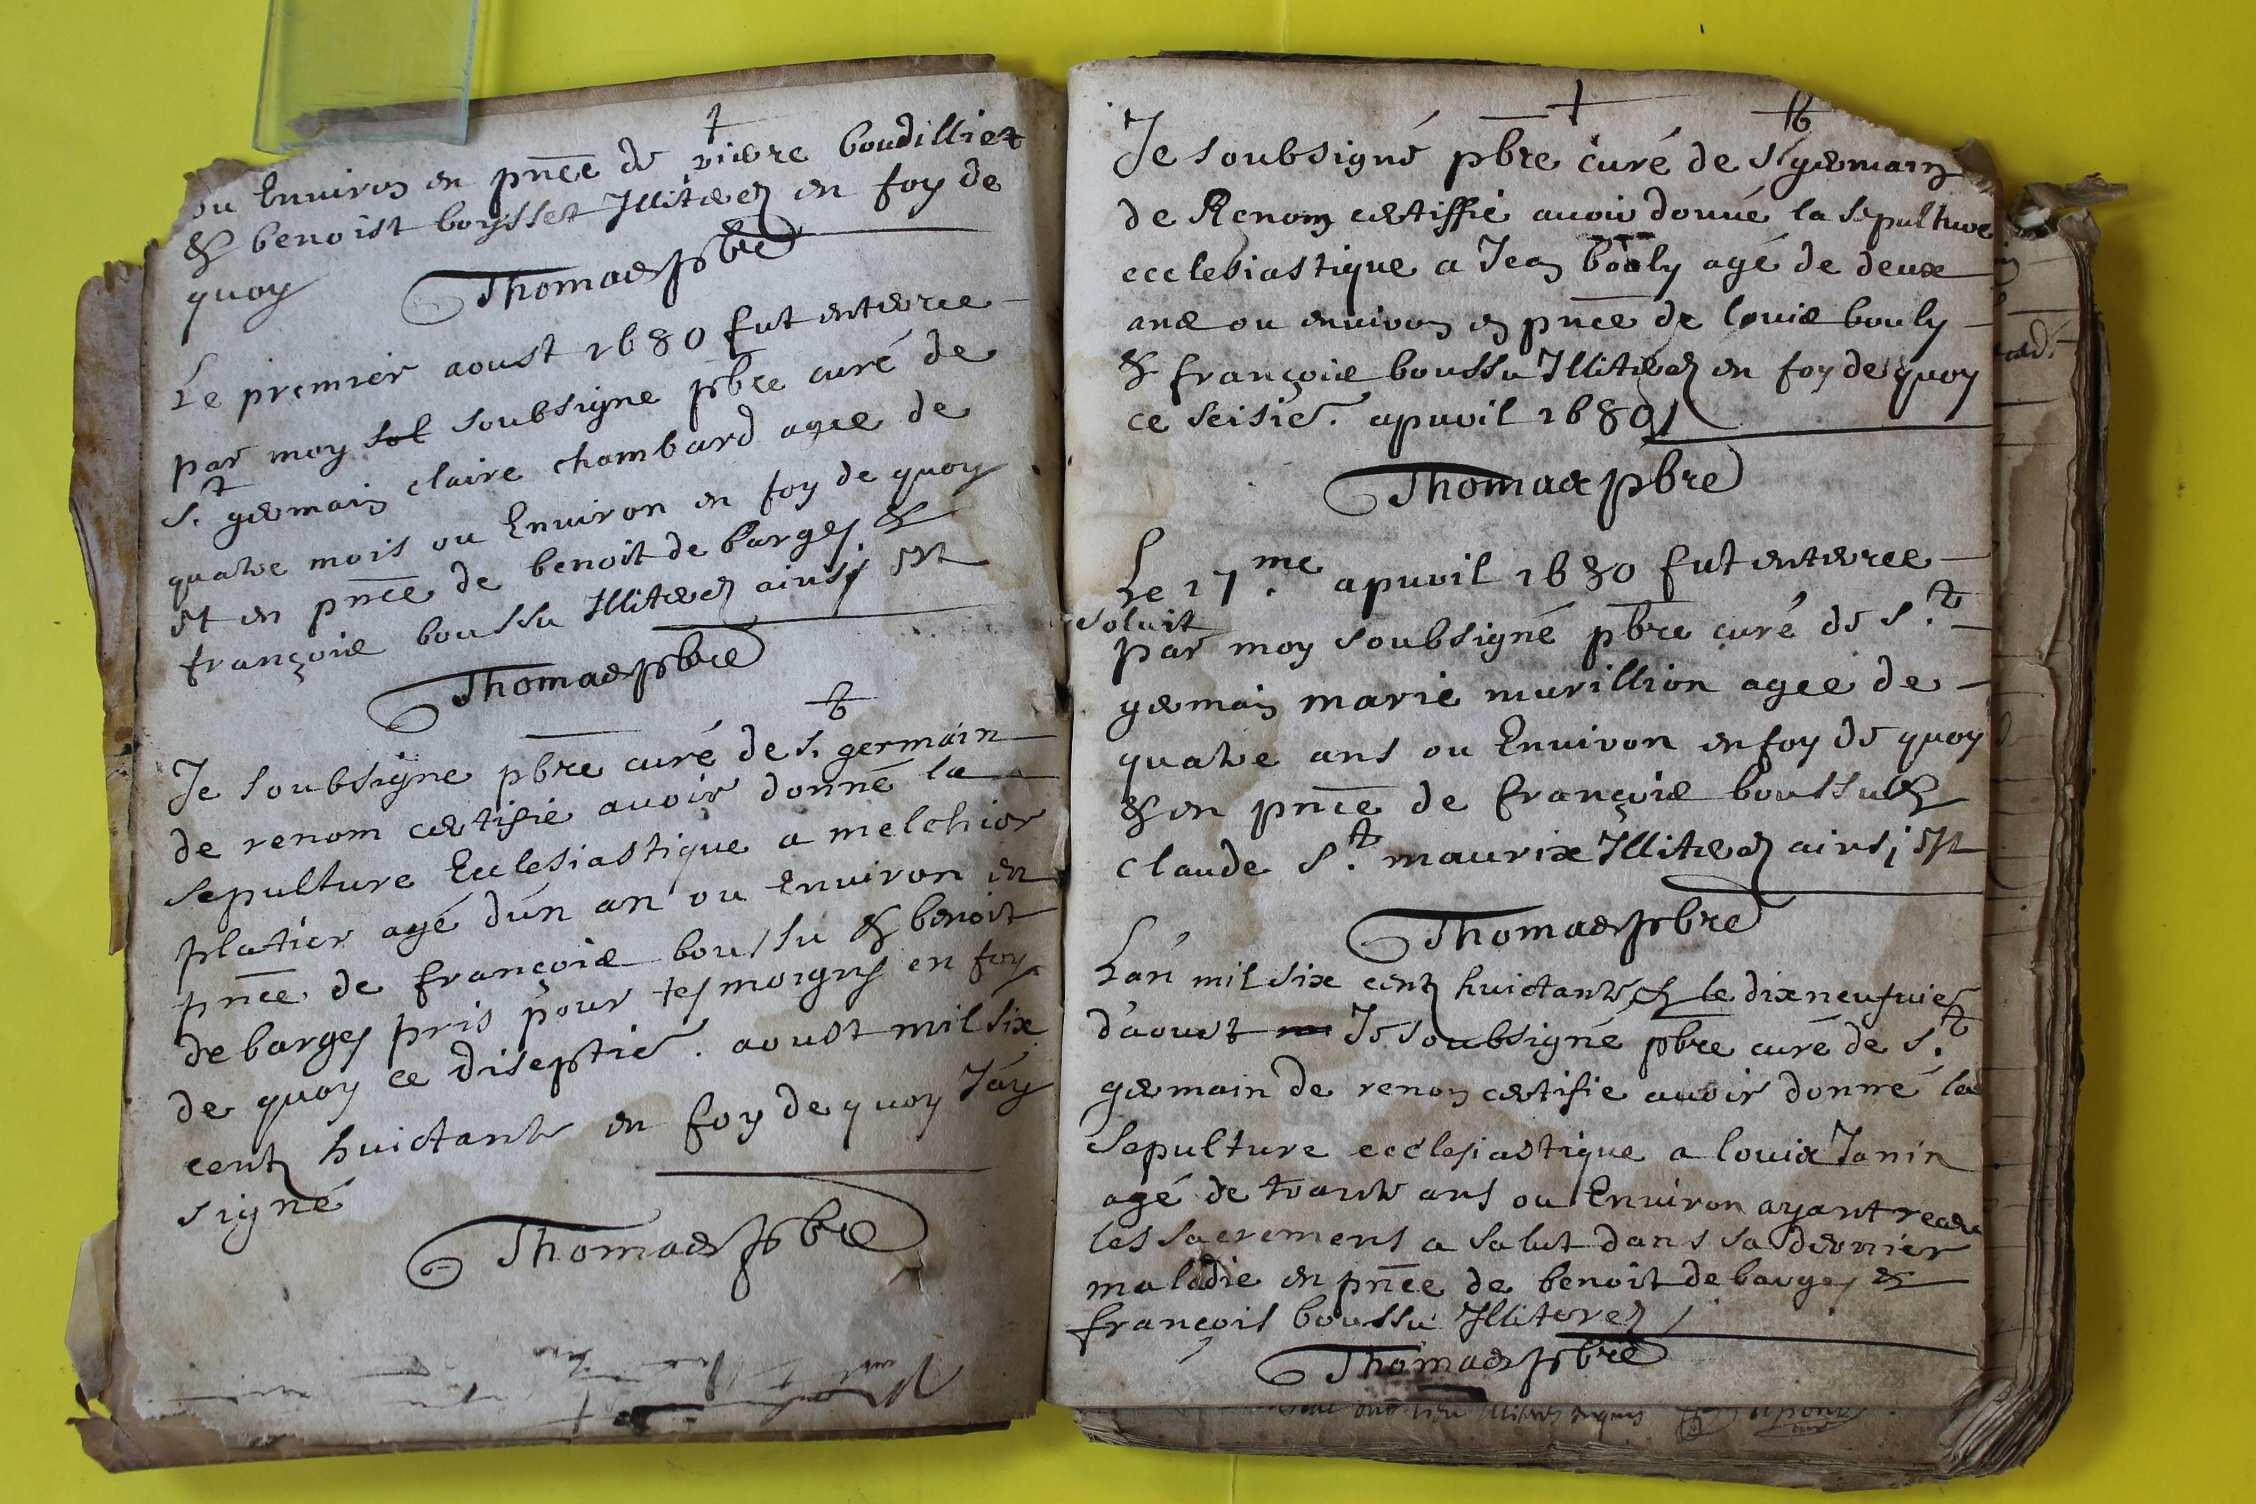 ou Environ en pnce de pierre boudillier
& benoist boysset Illiteres en foy de
quoy
Thomas pbre
Le premier aoust 1680 fut enterree
par moy sol soubsigne pbre curé de
st germain claire chambard agee de
quatre mois ou Environ en foy de quoy
et en pnce de benoit de barges &
françois boussu Illiteres ainsi est
Thomas pbre
Je soubsigne pbre curé de st germain
de renom certifie avoir donné la
sepulture Ecclesiastique a melchior
platier agé d'un an ou Environ en
pnce de françois boussu & benoit
de barges pris pour tesmoigns en foy
de quoy ce diseptie. aoust mil six
cents huictante en foy de quoy Jay
signé
Thomas pbre
Je soubsigné pbre curé de st germain
de Renom certiffie avoir donné la sepulture
ecclesiastique a Jean bouly agé de deux
ans ou environ en pnce de louis bouly
& françois boussu Illiteres en foy de quoy
ce seisie. apuril 1680
Thomas pbre
Le 17.me apuril 1680 fut enterree
soluit
par moy soubsigné pbre curé de St
germain marie murillion agee de
quatre ans ou Environ en foy de quoy
& en pnce de françois boussu &
claude St maurix Illiteres ainsi est
Thomas pbre
L'an mil six cents huictante & le dixneufuie
d'aoust Je soubsigné pbre curé de St
germain de renom certifie avoir donné la
sepulture ecclesiastique a louis Janin
agé de trante ans ou Environ ayant receu
les sacremens a salut dans sa dernier
maladie en pnce de benoit de barges &
françois boussu Illiteres
Thomas pbre